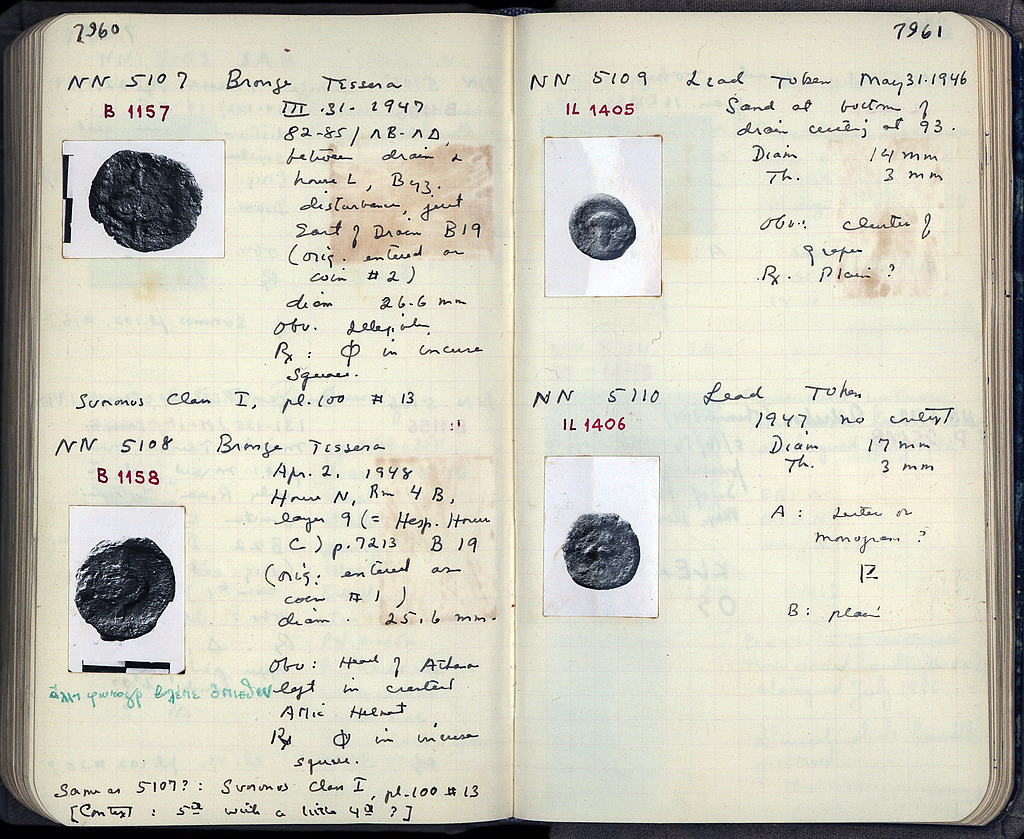 7960
NN 5107 Bronze Tessera
B 1157
III.31.1947
82-85/ΛΒ-ΛΔ,
between drain &
house L, B43.
disturbance, just
East of Drain B19
(orig. entered as
coin #2)
diam 26.6 mm
Obv. illegible
Rx: Φ in incuse
square.
Svoronos Class I, pl.100 #13
NN 5108 Bronze Tessera
B 1158
Apr. 2, 1948
House N, Rm 4 B,
layer 9 (= Hesp. House
C) p.7213 B 19
(orig. entered as
coin #1)
diam. 25.6 mm.
Obv: Head of Athena
left in crested
Attic Helmet
Rx Φ in incuse
square.
ἄλλη φωτογρ βλέπε ὄπισθεν
Same as 5107?: Svoronos Class I, pl.100 #13
[Context: 5th with a little 4th?]
7961
NN 5109 Lead Token May 31.1946
IL 1405
Sand at bottom of
drain at 93.
Diam 14 mm
Th. 3 mm
Obv: cluster of
grapes
Rx. Plain?
NN 5110 Lead Token
IL 1406
1947 no context
Diam 17 mm
Th. 3 mm
A: Letter or
monogram?
B: plain